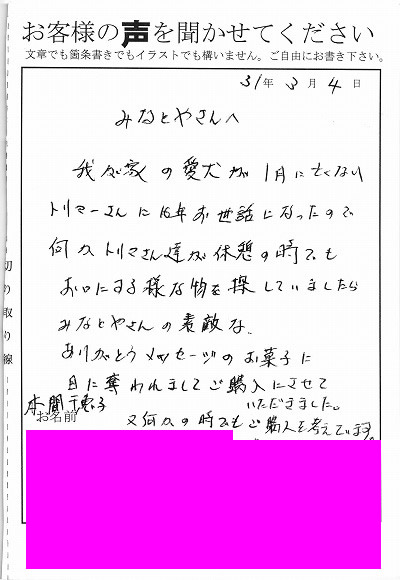 お客様の声を聞かせてください
文章でも箇条書きでもイラストでも構いません。ご自由にお書き下さい。
31年 3月 4日
みなとやさんへ
我が家の愛犬が1月に亡くなり
トリマーさんに16年お世話になったので
何かトリマさん達が休憩の時でも
お口にする様な物を探していましたら
みなとやさんの素敵な、
ありがとうメッセージのお菓子に
目に奪われましてご購入にさせて
いただきました。
又何かの時でもご購入を考えています。
本間千恵子
お名前
切り取り線